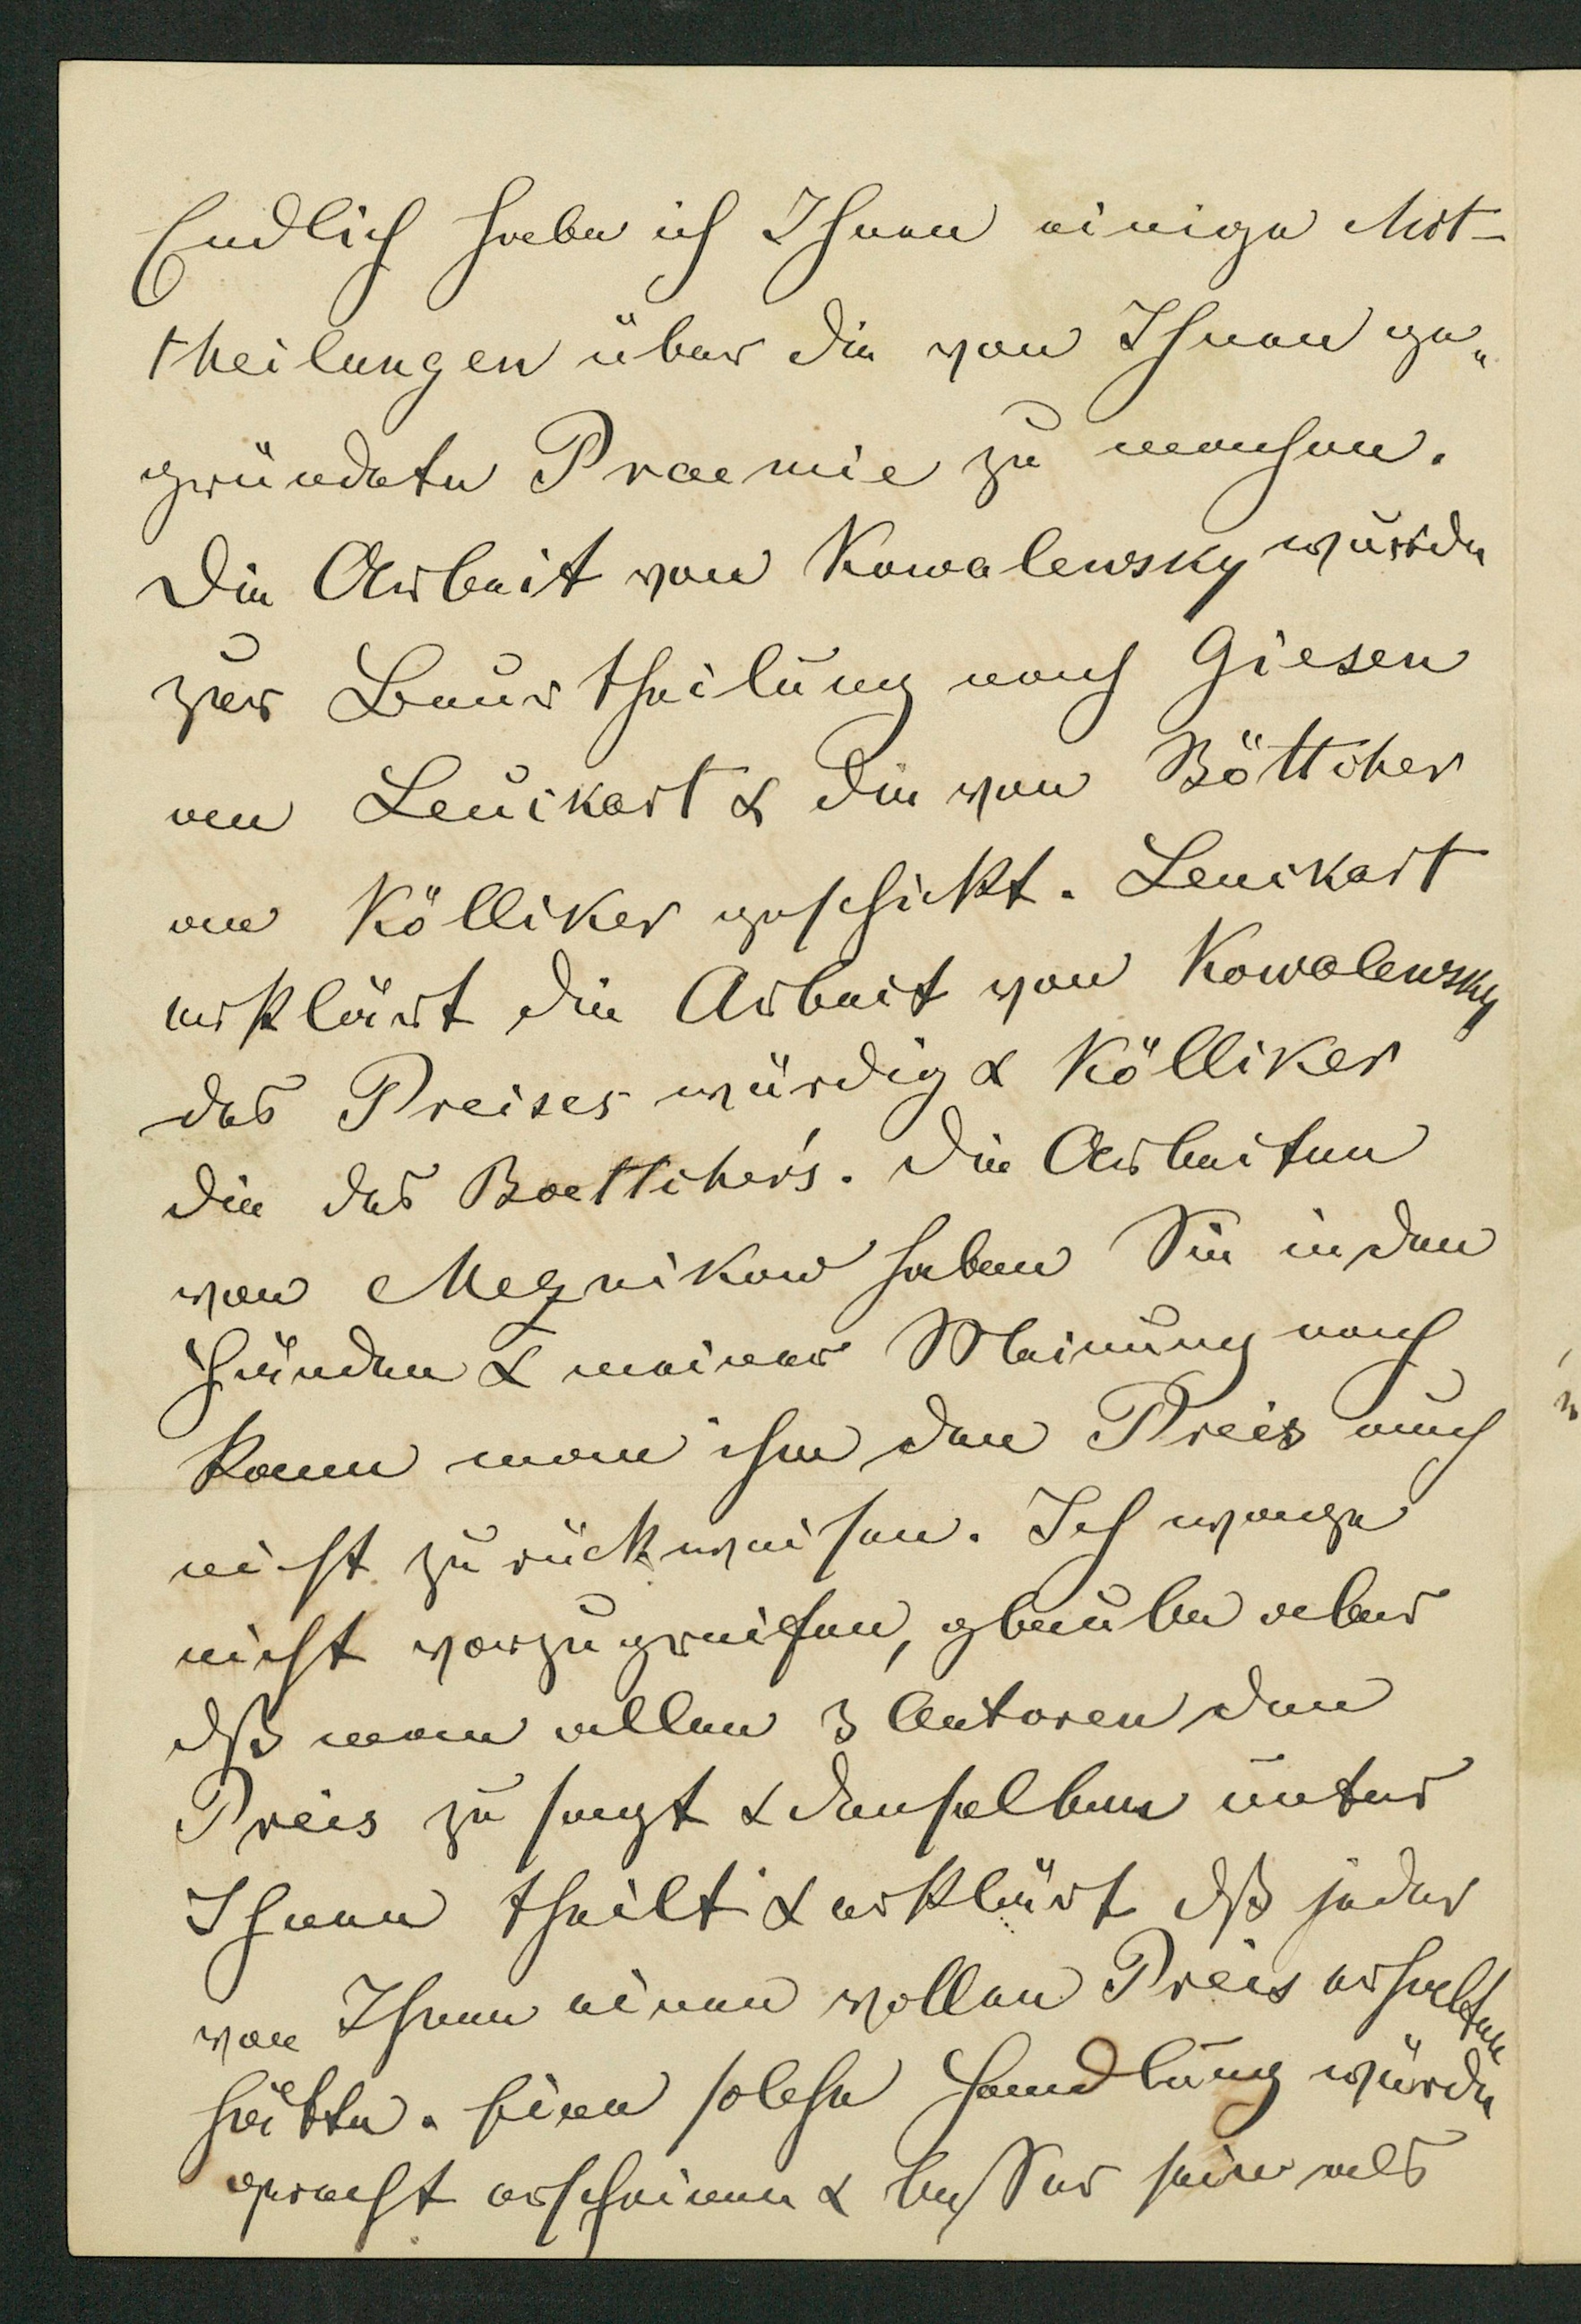 Endlich habe ich Ihnen einige Mit-
theilungen über die von Ihnen ge„
gründete Praemie zu machen.
Die Arbeit von Kowalewsky wurde
zur Beurtheilung nach Giesen
an Leuikart & die von Böttcher
an Kölliker geschickt. Leuikart
erklärt die Arbeit von Kowalewsky
des Preises würdig & Kölliker
die des Boettcher's. Die Arbeiten
von Meznikow haben Sie in den
Händen & meiner Meinung nach
kann man ihm den Preis auch
nicht zurückweisen. Ich wage
nicht vorzugreifen, glaube aber
dß man allen 3 Autoren den
Preis zu sagt & denselben unter
Ihnen theilt & erklärt dß jeder
von Ihnen einen vollen Preis erhalten
hätte. Eine solche Handlung würde
gerecht erscheinen & besser sein als